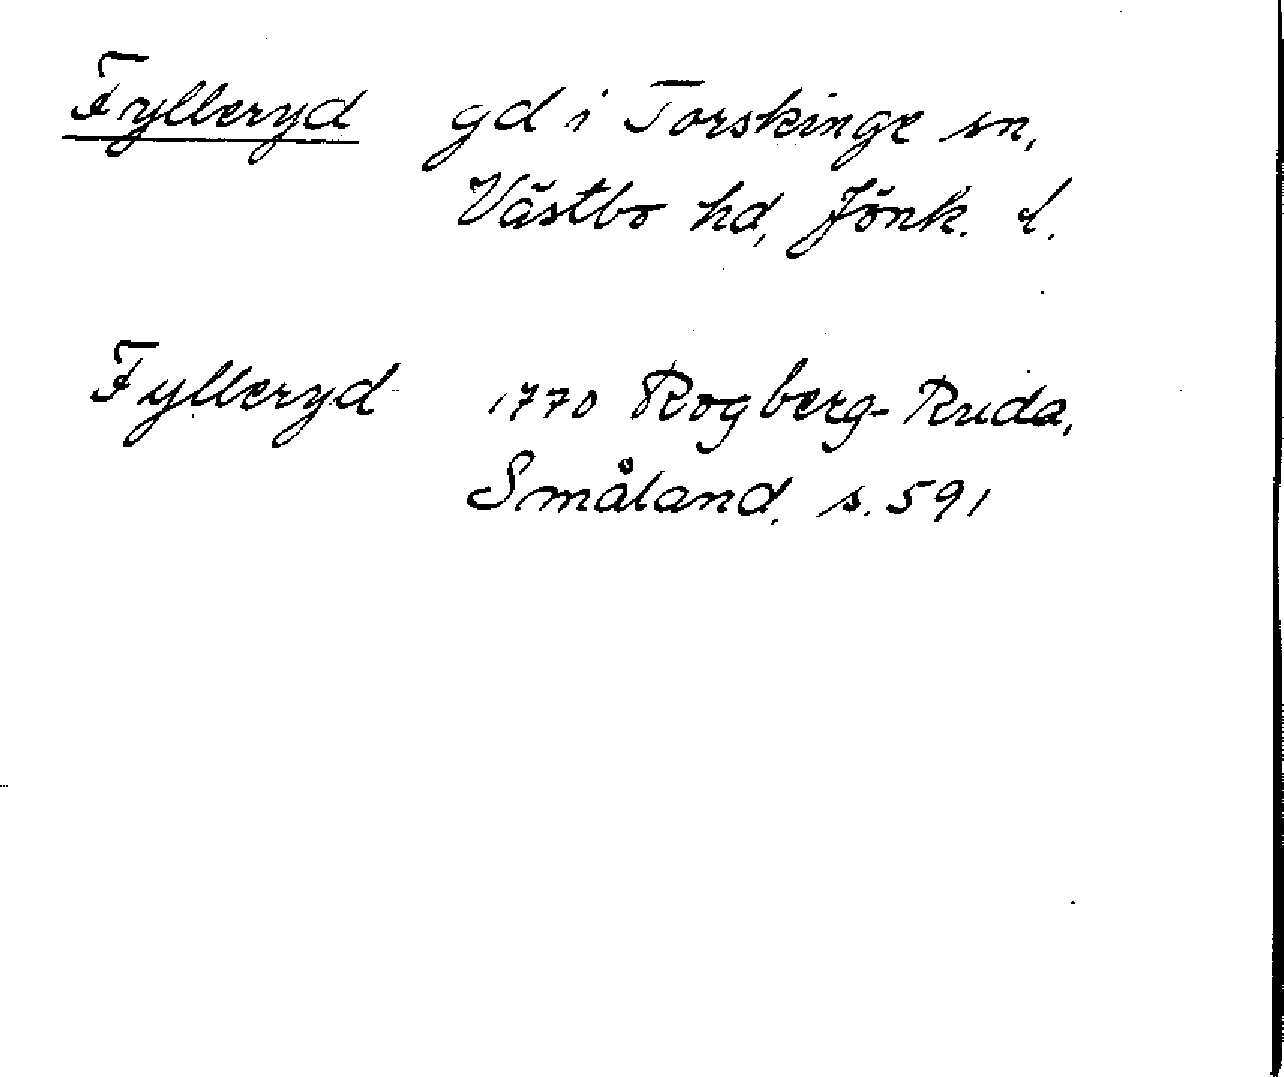 Fylleryd gd i Torskinge sn,
Västbo hd, Jönk. l.
Fylleryd 1770 Rogberg-Ruda,
Småland, s. 591